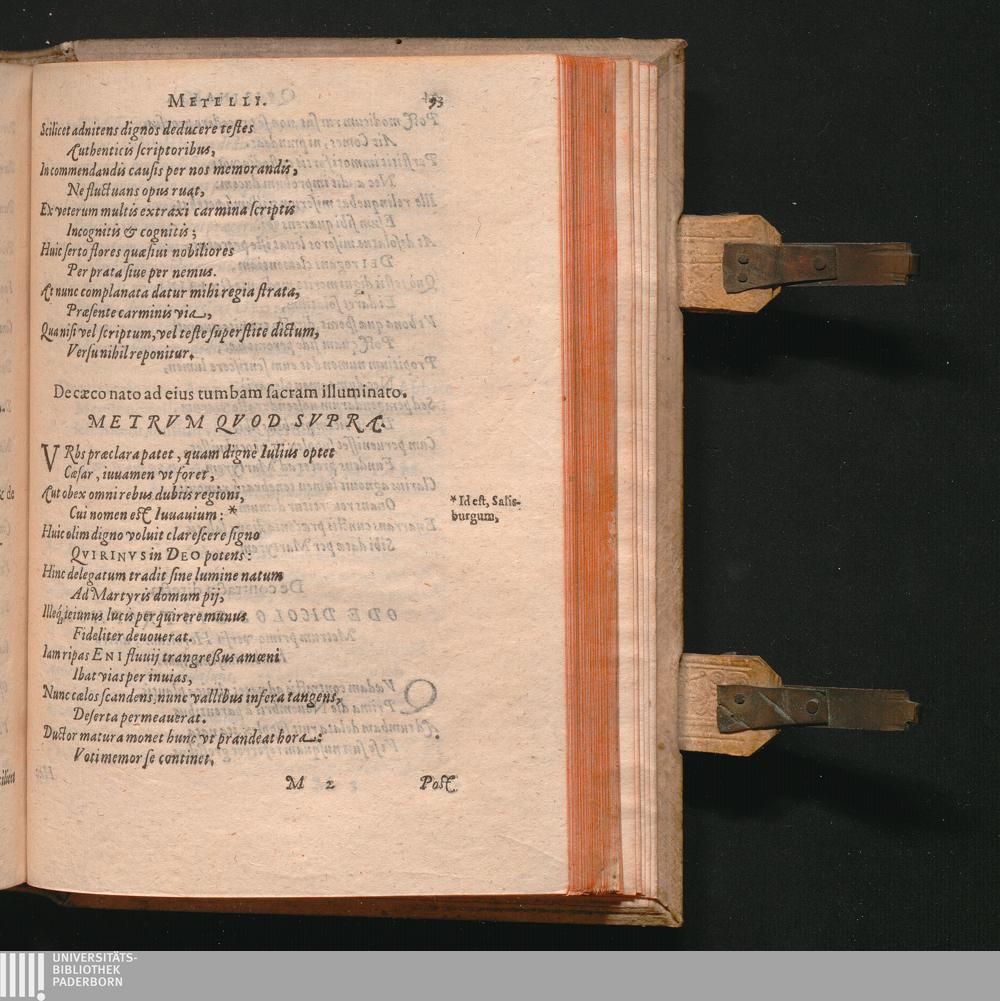 METELLI. 93
Scilicet adnitens dignos deducere testes
Authenticis scriptoribus,
In commendandis causis per nos memorandis,
Ne fluctuans opus ruat,
Ex veterum multis extraxi carmina scriptis
Incognitis & cognitis;
Huic serto flores quæsiui nobiliores
Per prata siue per nemus.
At nunc complanata datur mihi regia strata,
Præsente carminis via,
Qua nisi vel scriptum, vel teste superstite dictum,
Versu nihil reponitur.
De cæco nato ad eius tumbam sacram illuminato.
METRVM QVOD SVPRA.
VRbs præclara patet, quam digne Iulius optet
Cæsar, iuuamen vt foret,
Aut obex omni rebus dubiis regioni,
Cui nomen est Iuuauium: *
* Id est, Salis-
burgum,
Huic olim digno voluit clarescere signo
QVIRINVS in DEO potens:
Hinc delegatum tradit sine lumine natum
Ad Martyris domum pij,
Illeq́; ieiunus lucis perquirere munus
Fideliter deuouerat.
Iam ripas ENI fluuij trangreßus amœni
Ibat vias per inuias,
Nunc cælos scandens, nunc vallibus infera tangens,
Deserta permeauerat.
Ductor matura monet hunc vt prandeat hora:
Voti memor se continet,
M 2 Post
UNIVERSITÄTS-
BIBLIOTHEK
PADERBORN